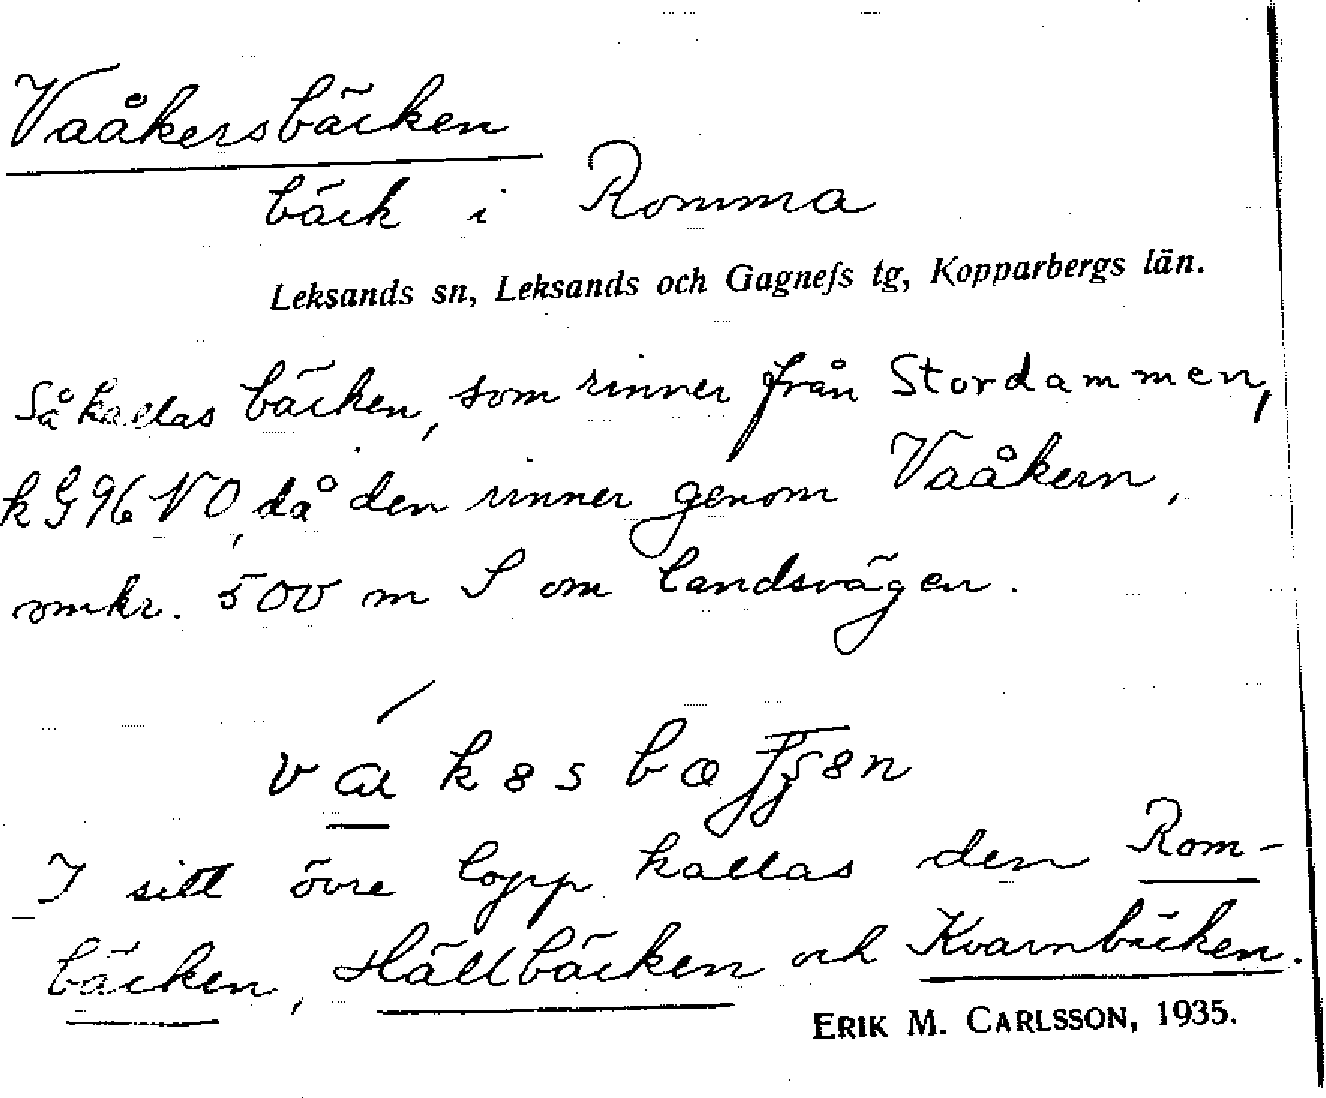 Vaåkersbäcken
bäck i Romma
Leksands sn, Leksands och Gagnefs tg, Kopparbergs län.
Så kallas bäcken, som rinner från Stordammen,
k G 96 NO, då den rinner genom Vaåkern,
omkr. 500 m S om landsvägen.
I sitt övre lopp kallas den Rom-
bäcken, Hällbäcken och Kvarnbäcken.
ERIK M. CARLSSON, 1935.